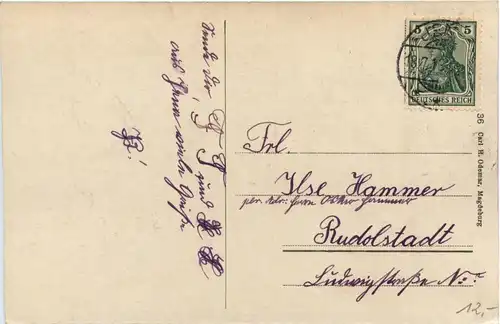 Sende dir,
aus Jena viele Grüße
B!
5 5
DEUTSCHES REICH
36 Carl H. Odemar, Magdeburg
Frl.
Ilse Hammer
per Adr: Herrn Hammer
Rudolstadt
Ludwigstraße No.
12,-